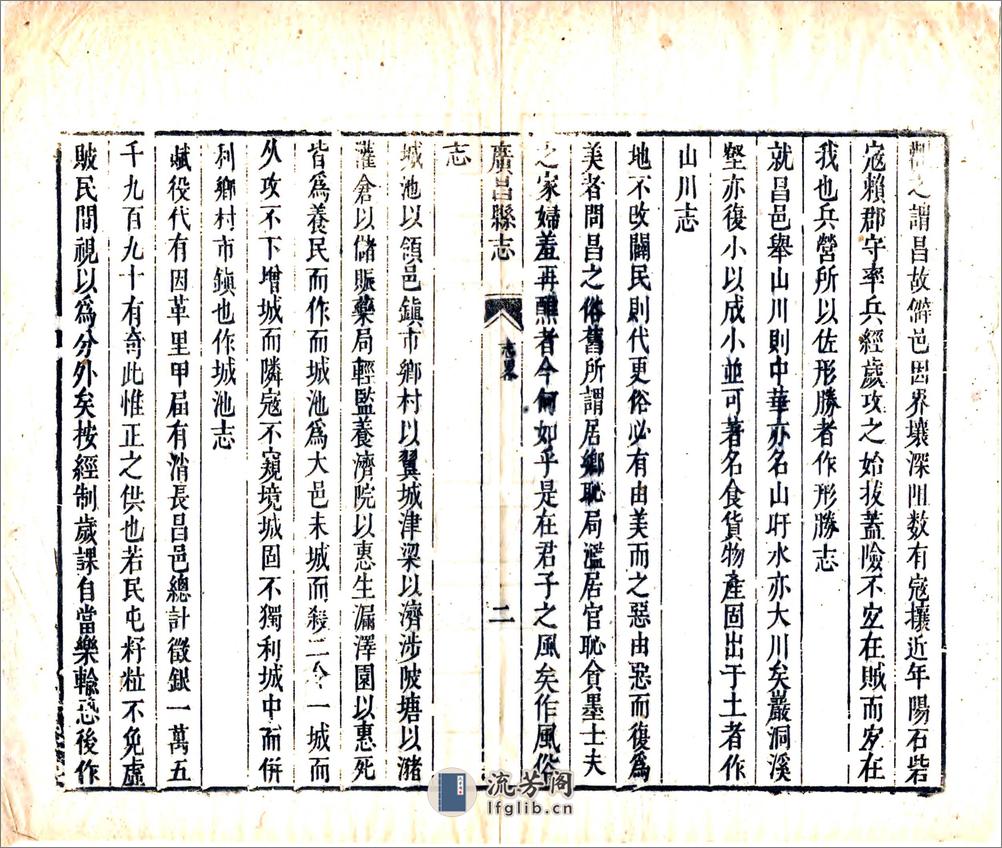 之謂昌故僻邑因界壤深阻数有寇攘近年陽石砦
寇賴郡守率兵經歲攻之始拔蓋險不㝎在賊而㝎在
我也兵營所以佐形勝者作形勝志
就昌邑舉山川則中華亦名山盱水亦大川矣巖洞溪
壑亦復小以成小並可著名食貨物產固出于土者作
山川志
地不改闢民則代更俗必有由美而之惡由惡而復爲
美者問昌之俗舊所謂居鄉恥局濫居官恥貪墨士夫
之家婦羞再醮者今何如乎是在君子之風矣作風俗
廣昌縣志
志畧
二
志
城池以領邑鎮市鄉村以翼城津梁以濟涉陂塘以瀦
灌倉以儲賑藥局輕監養濟院以惠生漏澤園以惠死
皆爲養民而作而城池爲大邑未城而殺二令一城而
久攻不下增城而隣寇不窺境城固不獨利城中而併
利鄉村市鎮也作城池志
賦役代有因革里甲屆有消長昌邑總計徵銀一萬五
千九百九十有奇此惟正之供也若民屯籽粒不免虛
賠民間視以爲分外矣按經制歲課自當樂輸恐後作
流芳阁
lfglib.cn